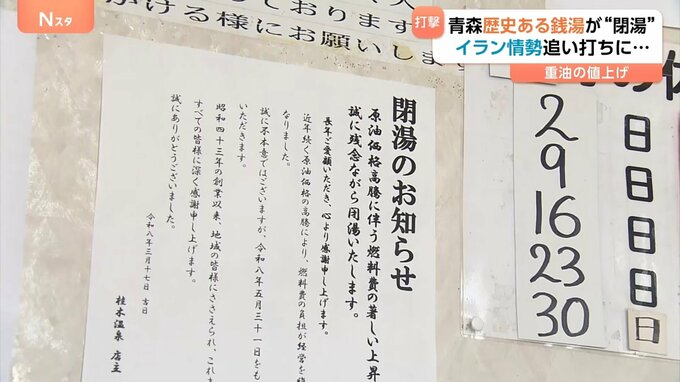 Nスタ
打撃
青森歴史ある銭湯が“閉湯”
イラン情勢追い打ちに…
重油の値上げ
しております
がける様にお願いしま
閉湯のお知らせ
原油価格高騰に伴う燃料費の著しい上昇
誠に残念ながら閉湯いたします。
長年ご愛顧いただき、心より感謝申し上げます。
近年続く原油価格の高騰により、燃料費の負担が経営を
なりました。
誠に不本意ではございますが、令和八年五月三十一日をも
いただきます。
昭和四十三年の創業以来、地域の皆様にささえられ、これま
すべての皆様に深く感謝申し上げます。
誠にありがとうございました。
令和八年三月十七日 吉日
桂木温泉 店主
2 日
9 日
16 日
23 日
30 日